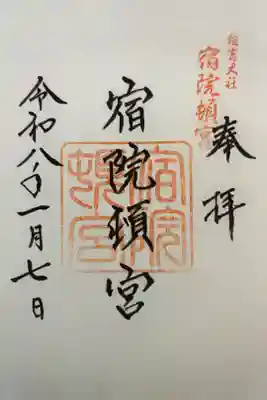 奉拝
住吉大社
宿院頓宮
宿院頓宮
宿院頓宮
令和八年一月七日